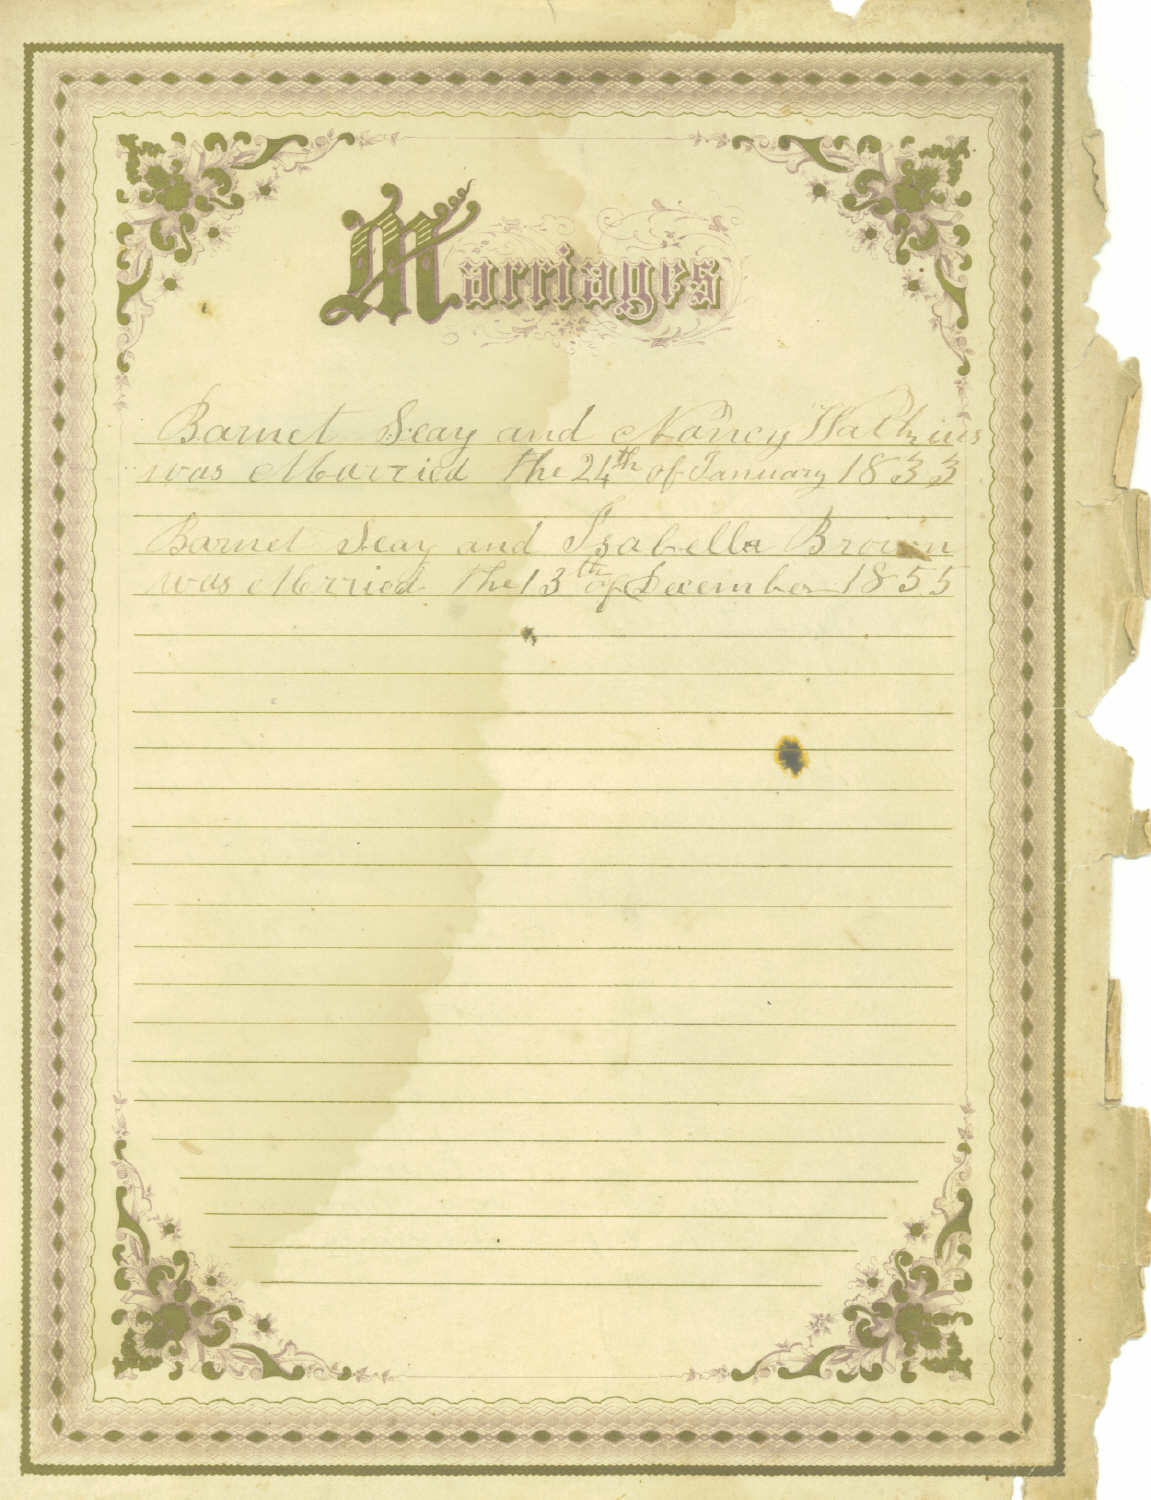 Marriages
Barnet Seay and Nancy Watkins
was Married the 24th of January 1833
Barnet Seay and Isabella Brown
was Merried the 13th of December 1855